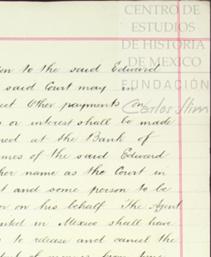 CENTRO DE
ESTUDIOS
DE HISTORIA
DE MEXICO
FUNDACIÓN
Carlos Slim
ion to the said Edward
said Court may in
ect other payments on
s or interest shall be made
ned at the Bank of
mes of the said Edward
ther name as the Court in
t and some person to be
or on his behalf. The Agent
anked in Mexico shall have
to release and cancel the